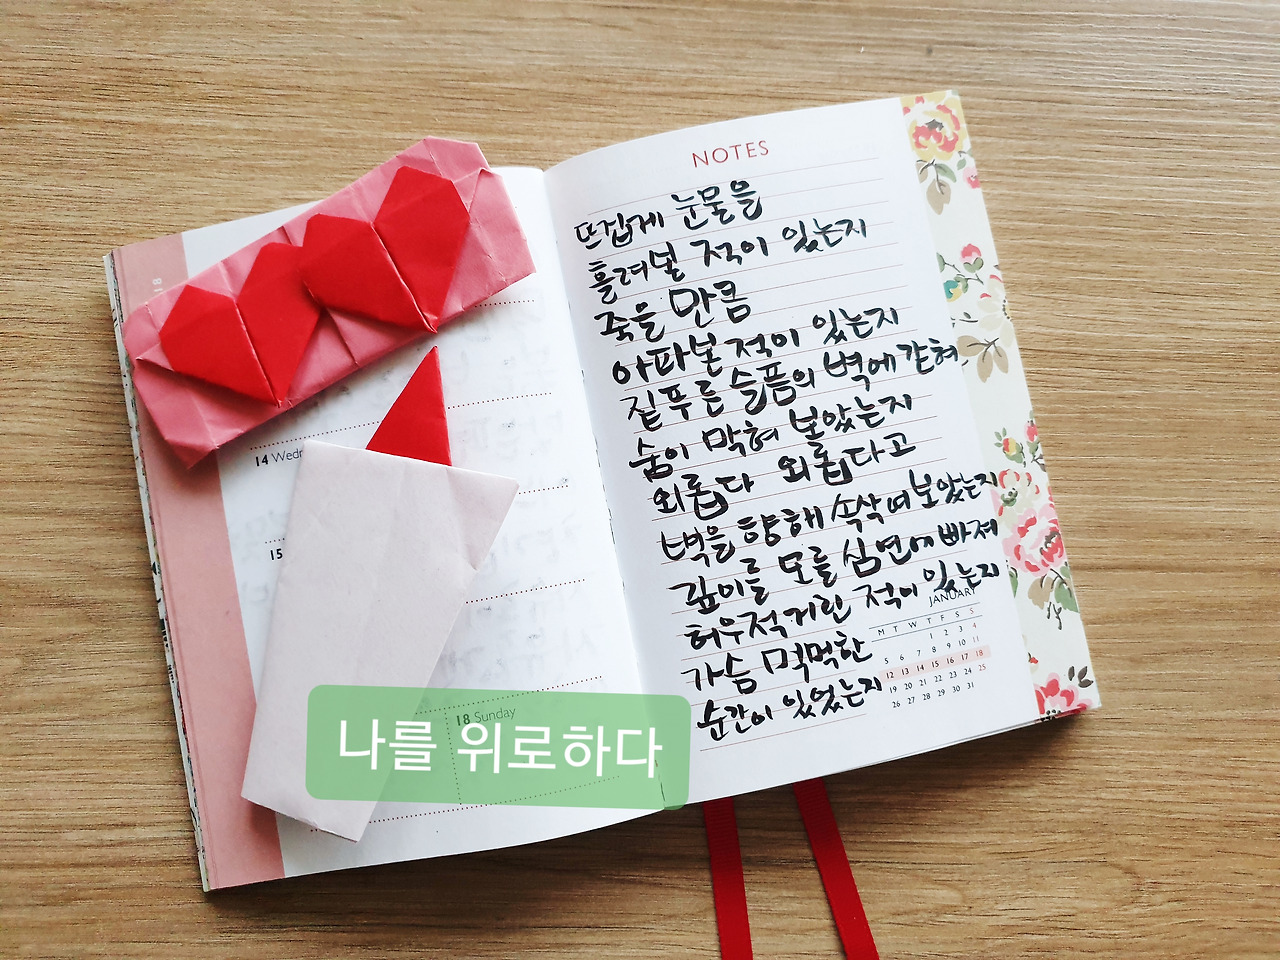 NOTES
뜨겁게 눈물을
흘려본 적이 있는지
죽을 만큼
아파본 적이 있는지
짙푸른 슬픔의 벽에 갇혀
숨이 막혀 보았는지
외롭다 외롭다고
벽을 향해 속삭여 보았는지
깊이를 모를 심연에 빠져
허우적거린 적이 있는지
가슴 먹먹한
순간이 있었는지
JANUARY
M T W T F S S
1 2 3 4
5 6 7 8 9 10 11
12 13 14 15 16 17 18
19 20 21 22 23 24 25
26 27 28 29 30 31
14
15
18 Sunday
나를 위로하다